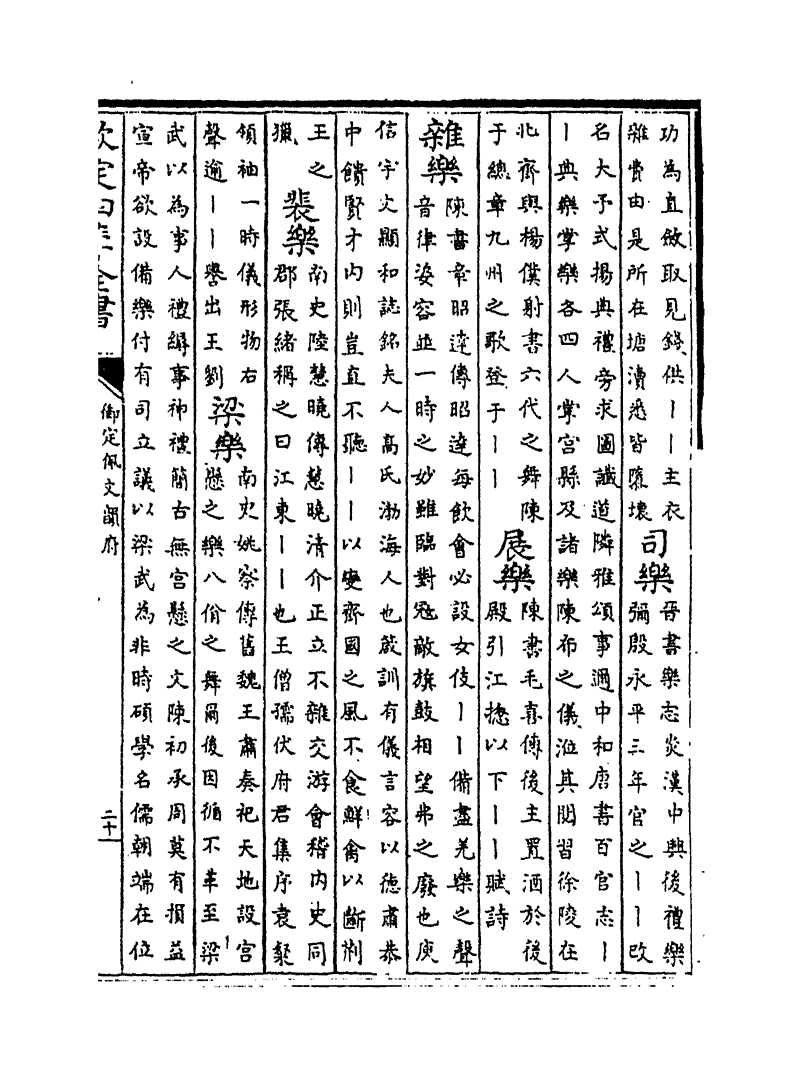 功為直斂取見錢供丨丨主衣
雜費由是所在塘瀆悉皆隳壞
司樂
晉書樂志炎漢中興後禮樂
彌殷永平三年官之丨丨改
名大予式揚典禮旁求圖讖道隣雅頌事邇中和唐書百官志丨
丨典樂掌樂各四人掌宮縣及諸樂陳布之儀涖其閱習徐陵在
北齊與楊僕射書六代之舞陳
于總章九州之歌登于丨丨
展樂
陳書毛喜傳後主置酒於後
殿引江摠以下丨丨賦詩
雜樂
陳書章昭達傳昭達每飲會必設女伎丨丨備盡羌樂之聲
音律姿容並一時之妙雖臨對冦敵旗鼓相望弗之廢也庾
信宇文顯和誌銘夫人高氏渤海人也箴訓有儀言容以德肅恭
中饋賢才內則豈直不聽丨丨以變齊國之風不食鮮禽以斷荆
王之
獵
裴樂
南史陸慧曉傳慧曉清介正立不雜交游會稽內史同
郡張緒稱之曰江東丨丨也王僧孺伏府君集序袁粲
領袖一時儀形物右
聲逾丨丨譽出王劉
梁樂
南史姚察傳舊魏王肅奏祀天地設宮
懸之樂八佾之舞爾後因循不革至梁
武以為事人禮縟事神禮簡古無宮懸之文陳初承周莫有損益
宣帝欲設備樂付有司立議以梁武為非時碩學名儒朝端在位
欽定四庫全書
御定佩文韻府
二十一